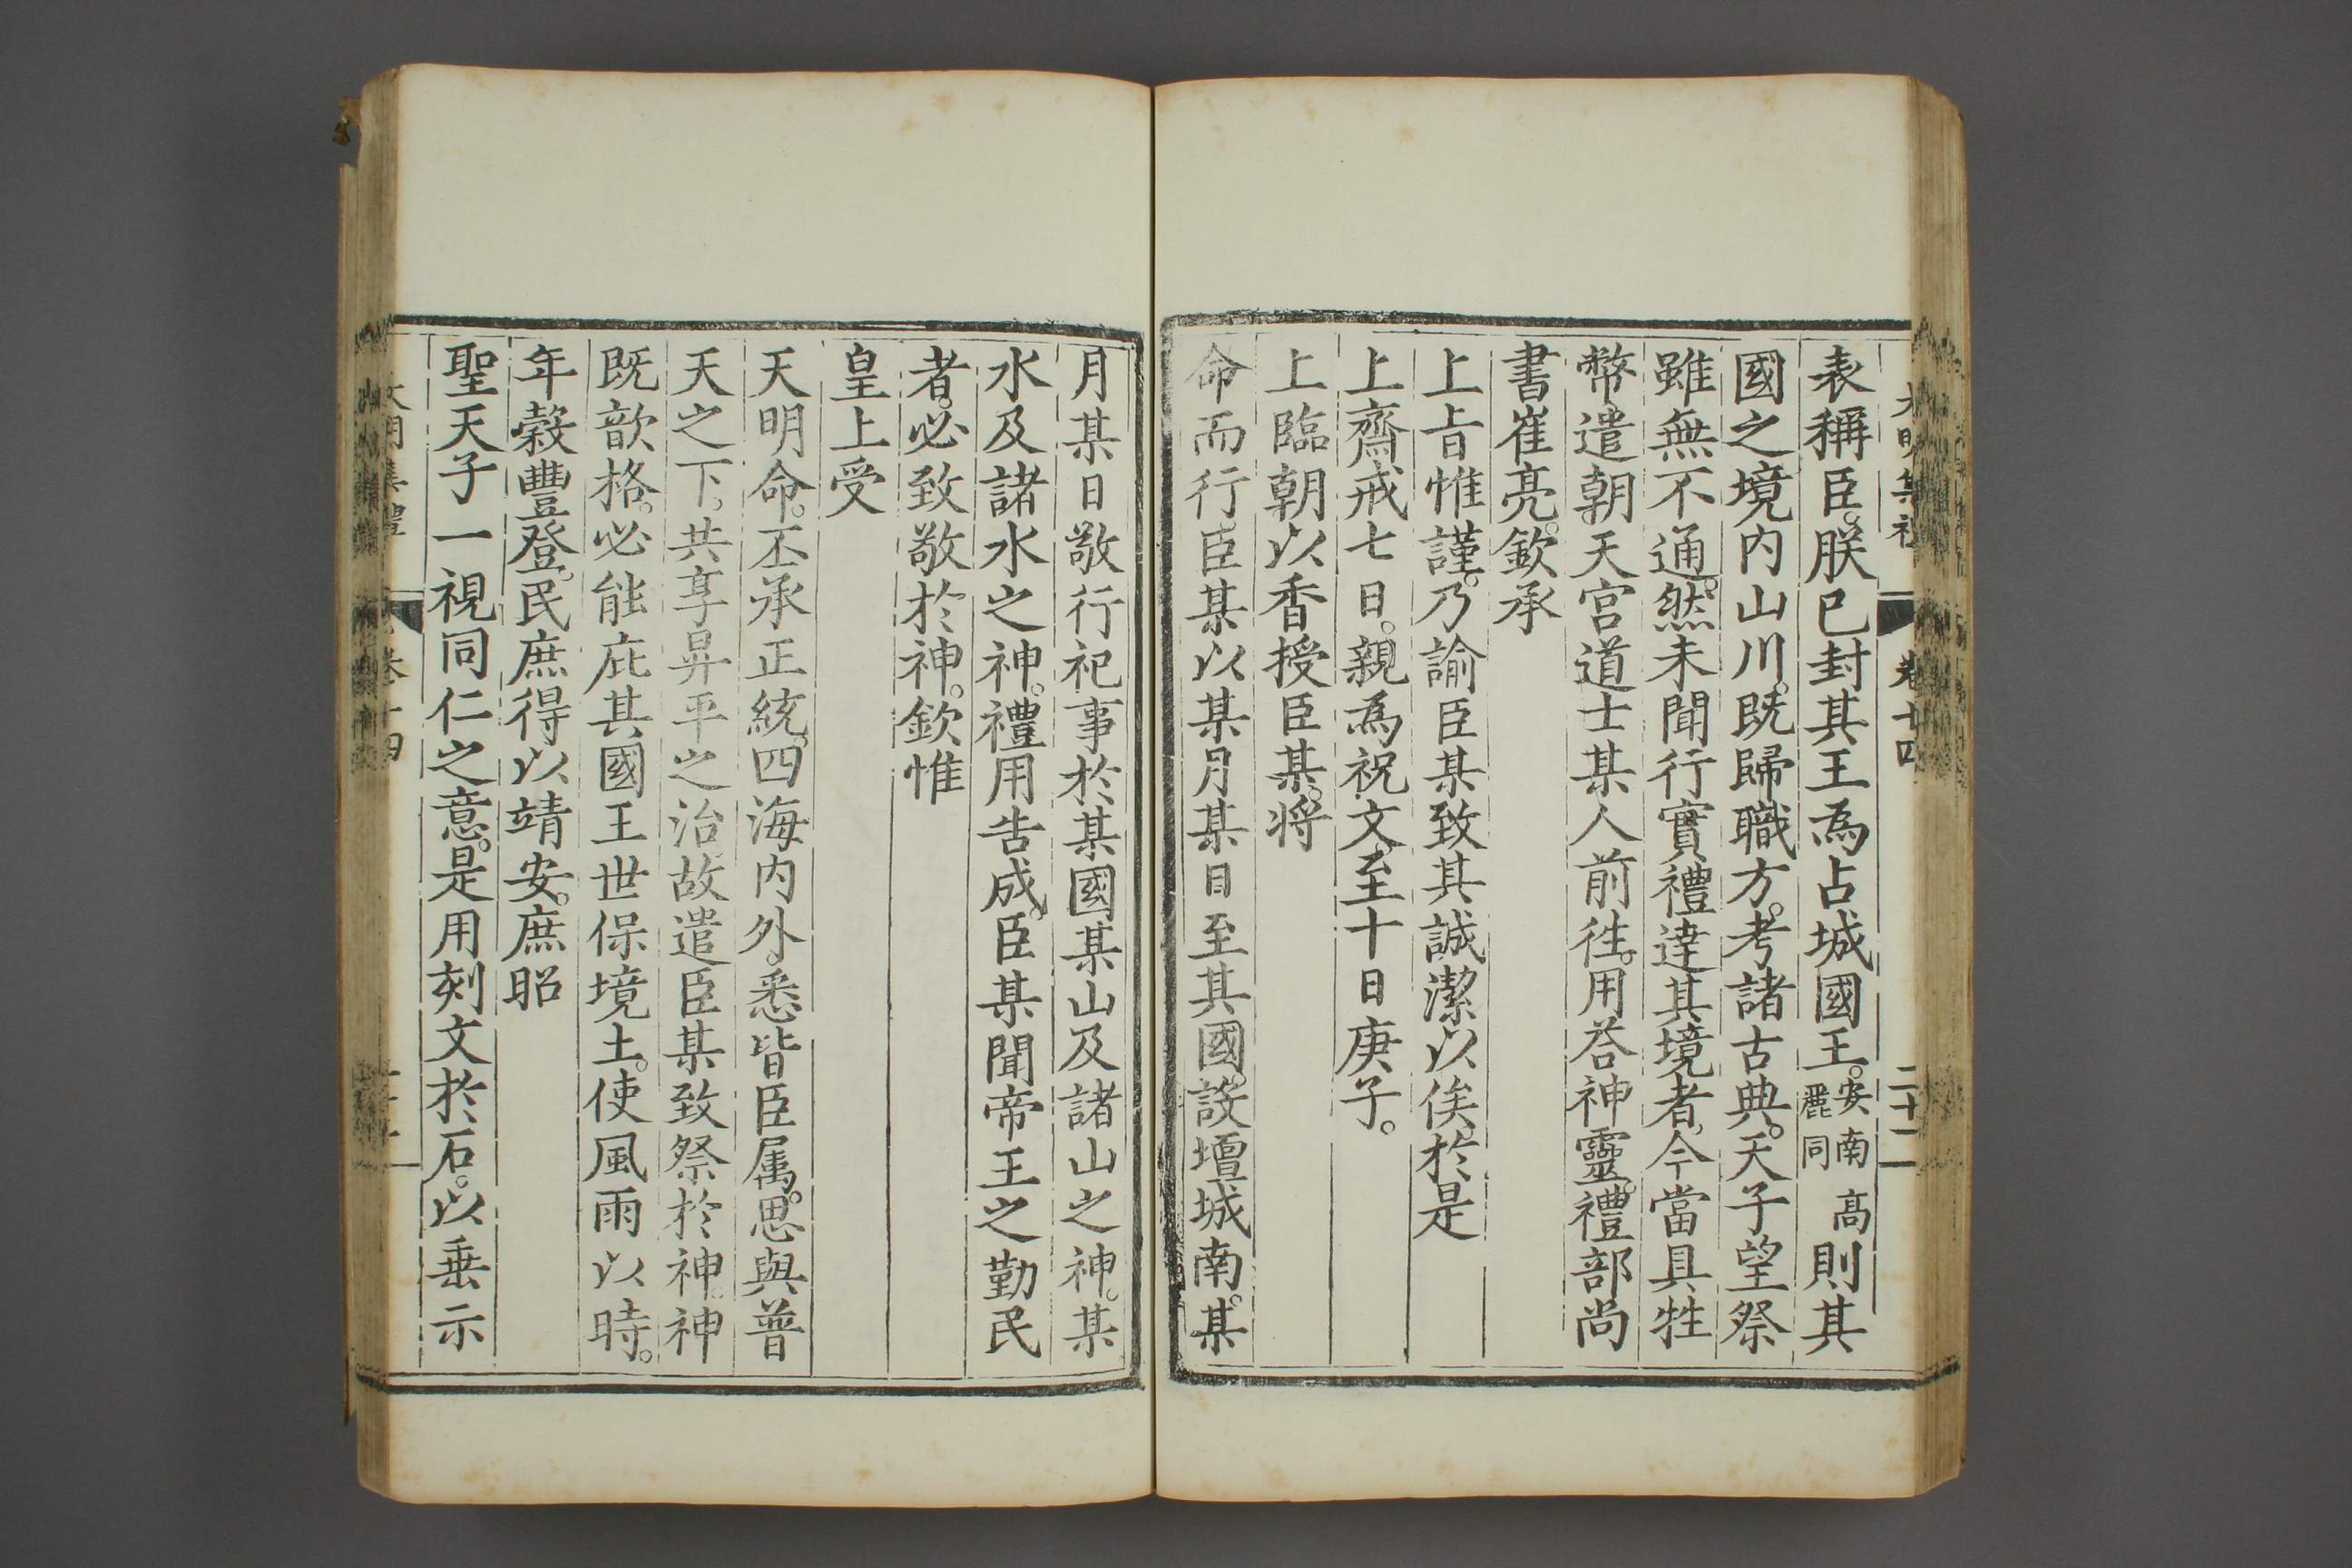 大明集禮 卷十四 二十二
表稱臣。朕已封其王為占城國王。安南高麗同則其
國之境内山川。既歸職方。考諸古典。天子望祭
雖無不通。然未聞行實禮達其境者。今當具牲
幣遣朝天宫道士某人前徃。用荅神靈。禮部尚
書崔亮。欽承
上㫖惟謹。乃諭臣某致其誠潔以俟。於是
上齋戒七日。親為祝文。至十日庚子。
上臨朝以香授臣某。将
命而行。臣某以某月某日至其國。設壇城南。某
月某日敬行祀事於某國某山及諸山之神。某
水及諸水之神。禮用告成。臣某聞帝王之勤民
者。必致敬於神。欽惟
皇上受
天明命。丕承正統。四海内外。悉皆臣属。思與普
天之下。共享昇平之治。故遣臣某致祭於神。神
既歆格。必能庇其國王世保境土。使風雨以時。
年穀豐登。民庶得以靖安。庶昭
聖天子一視同仁之意。是用刻文於石。以垂示
大明集禮 卷十四